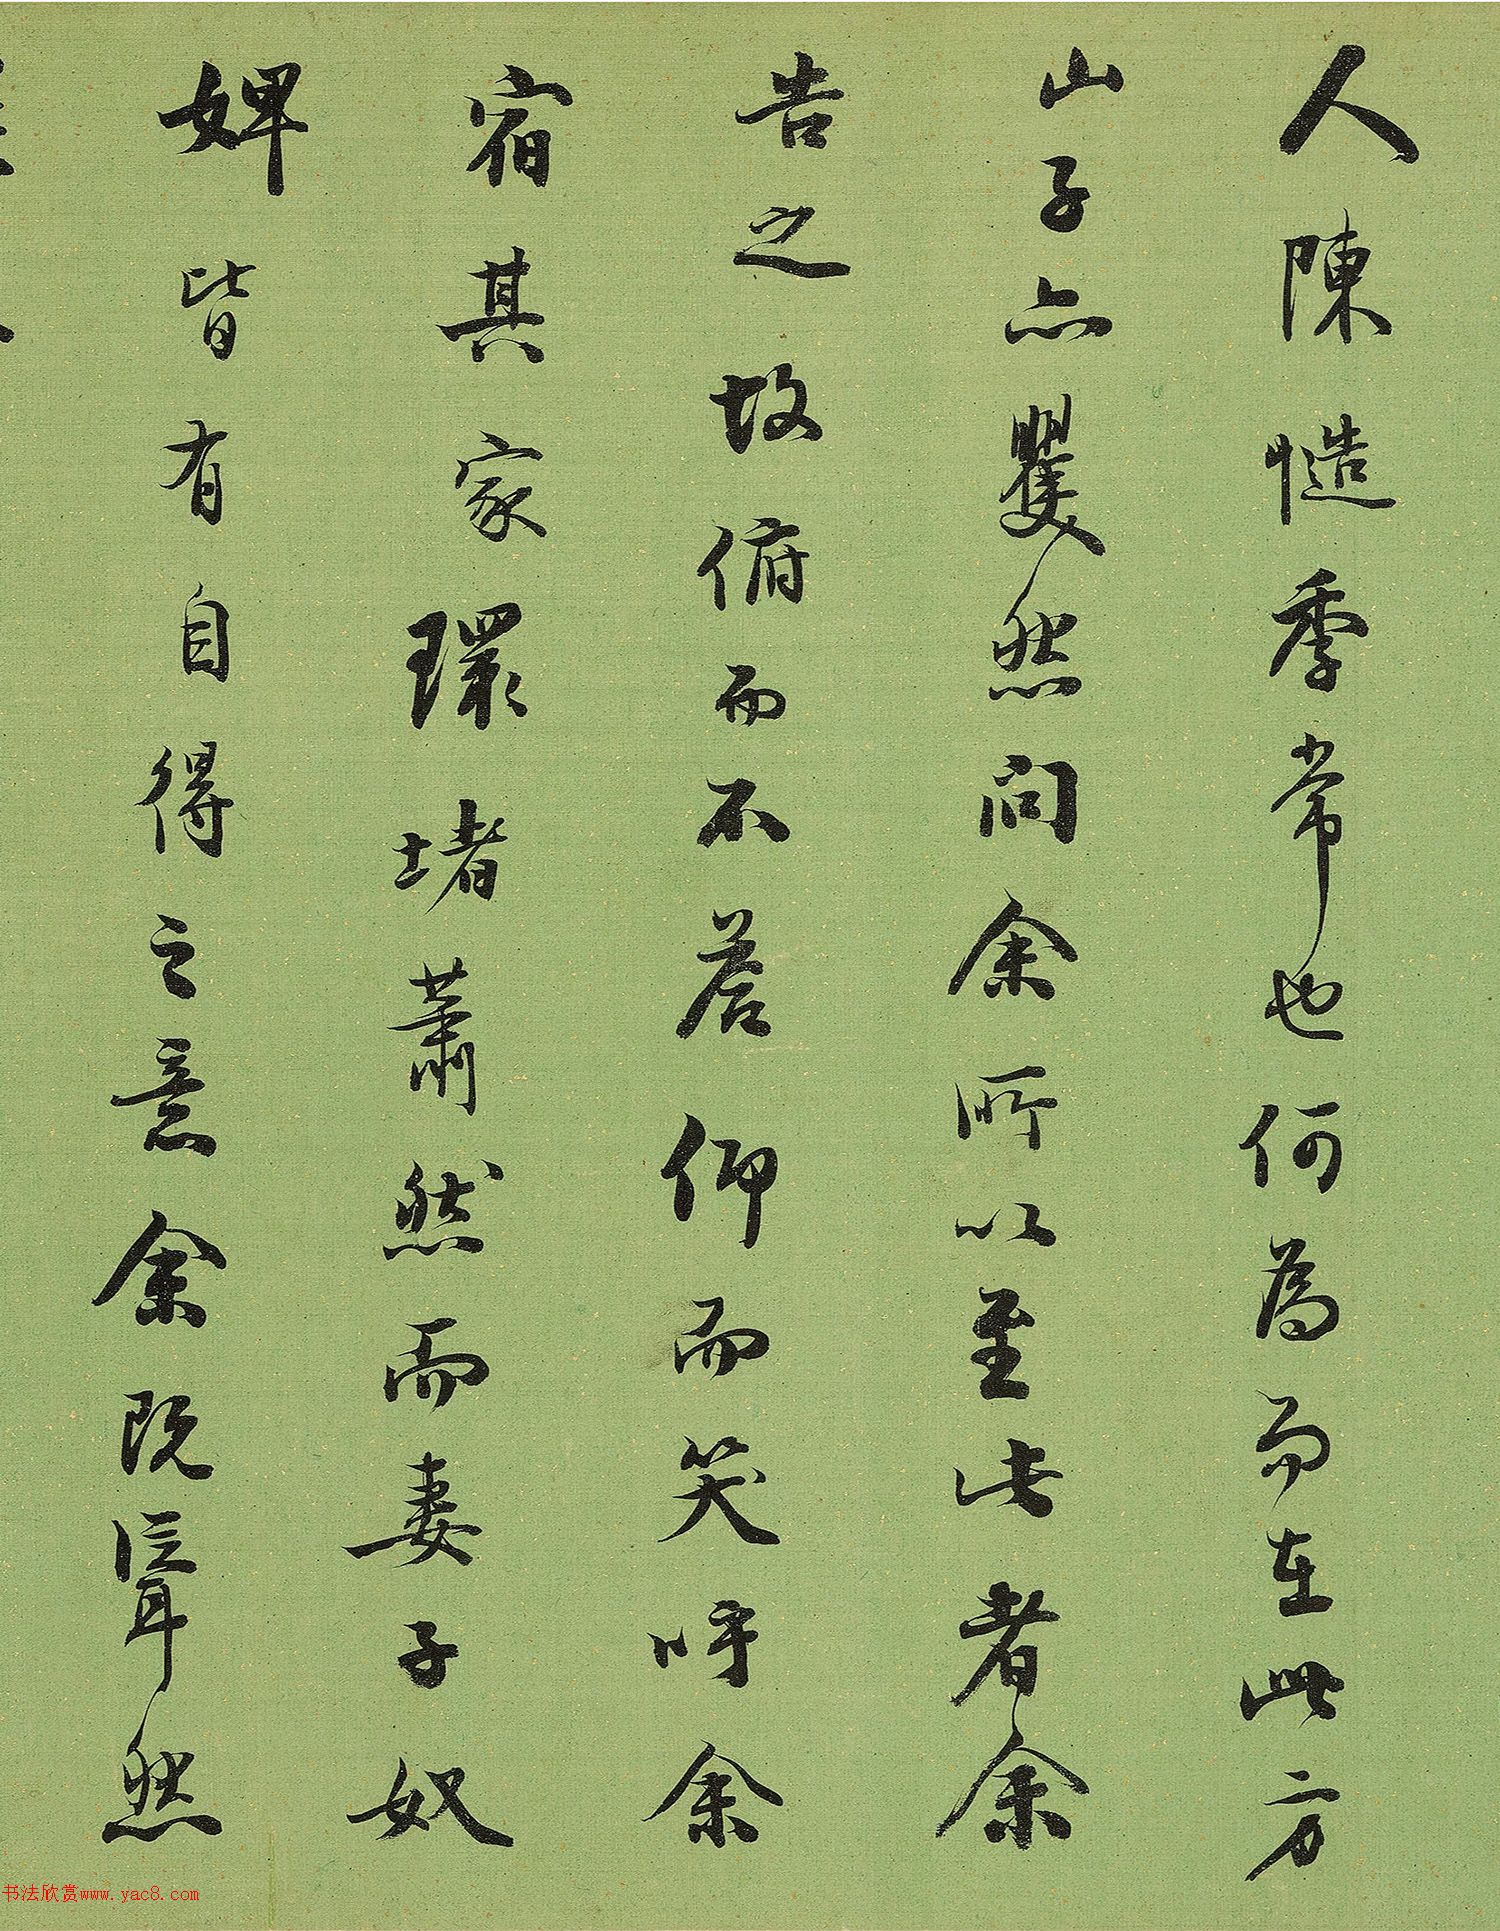 人陳慥季常也何為而在此方
山子亦矍然問余所以至此者余
告之故俯而不荅仰而笑呼余
宿其家環堵蕭然而妻子奴
婢皆有自得之意余既聳然
书法欣赏www.yac8.com